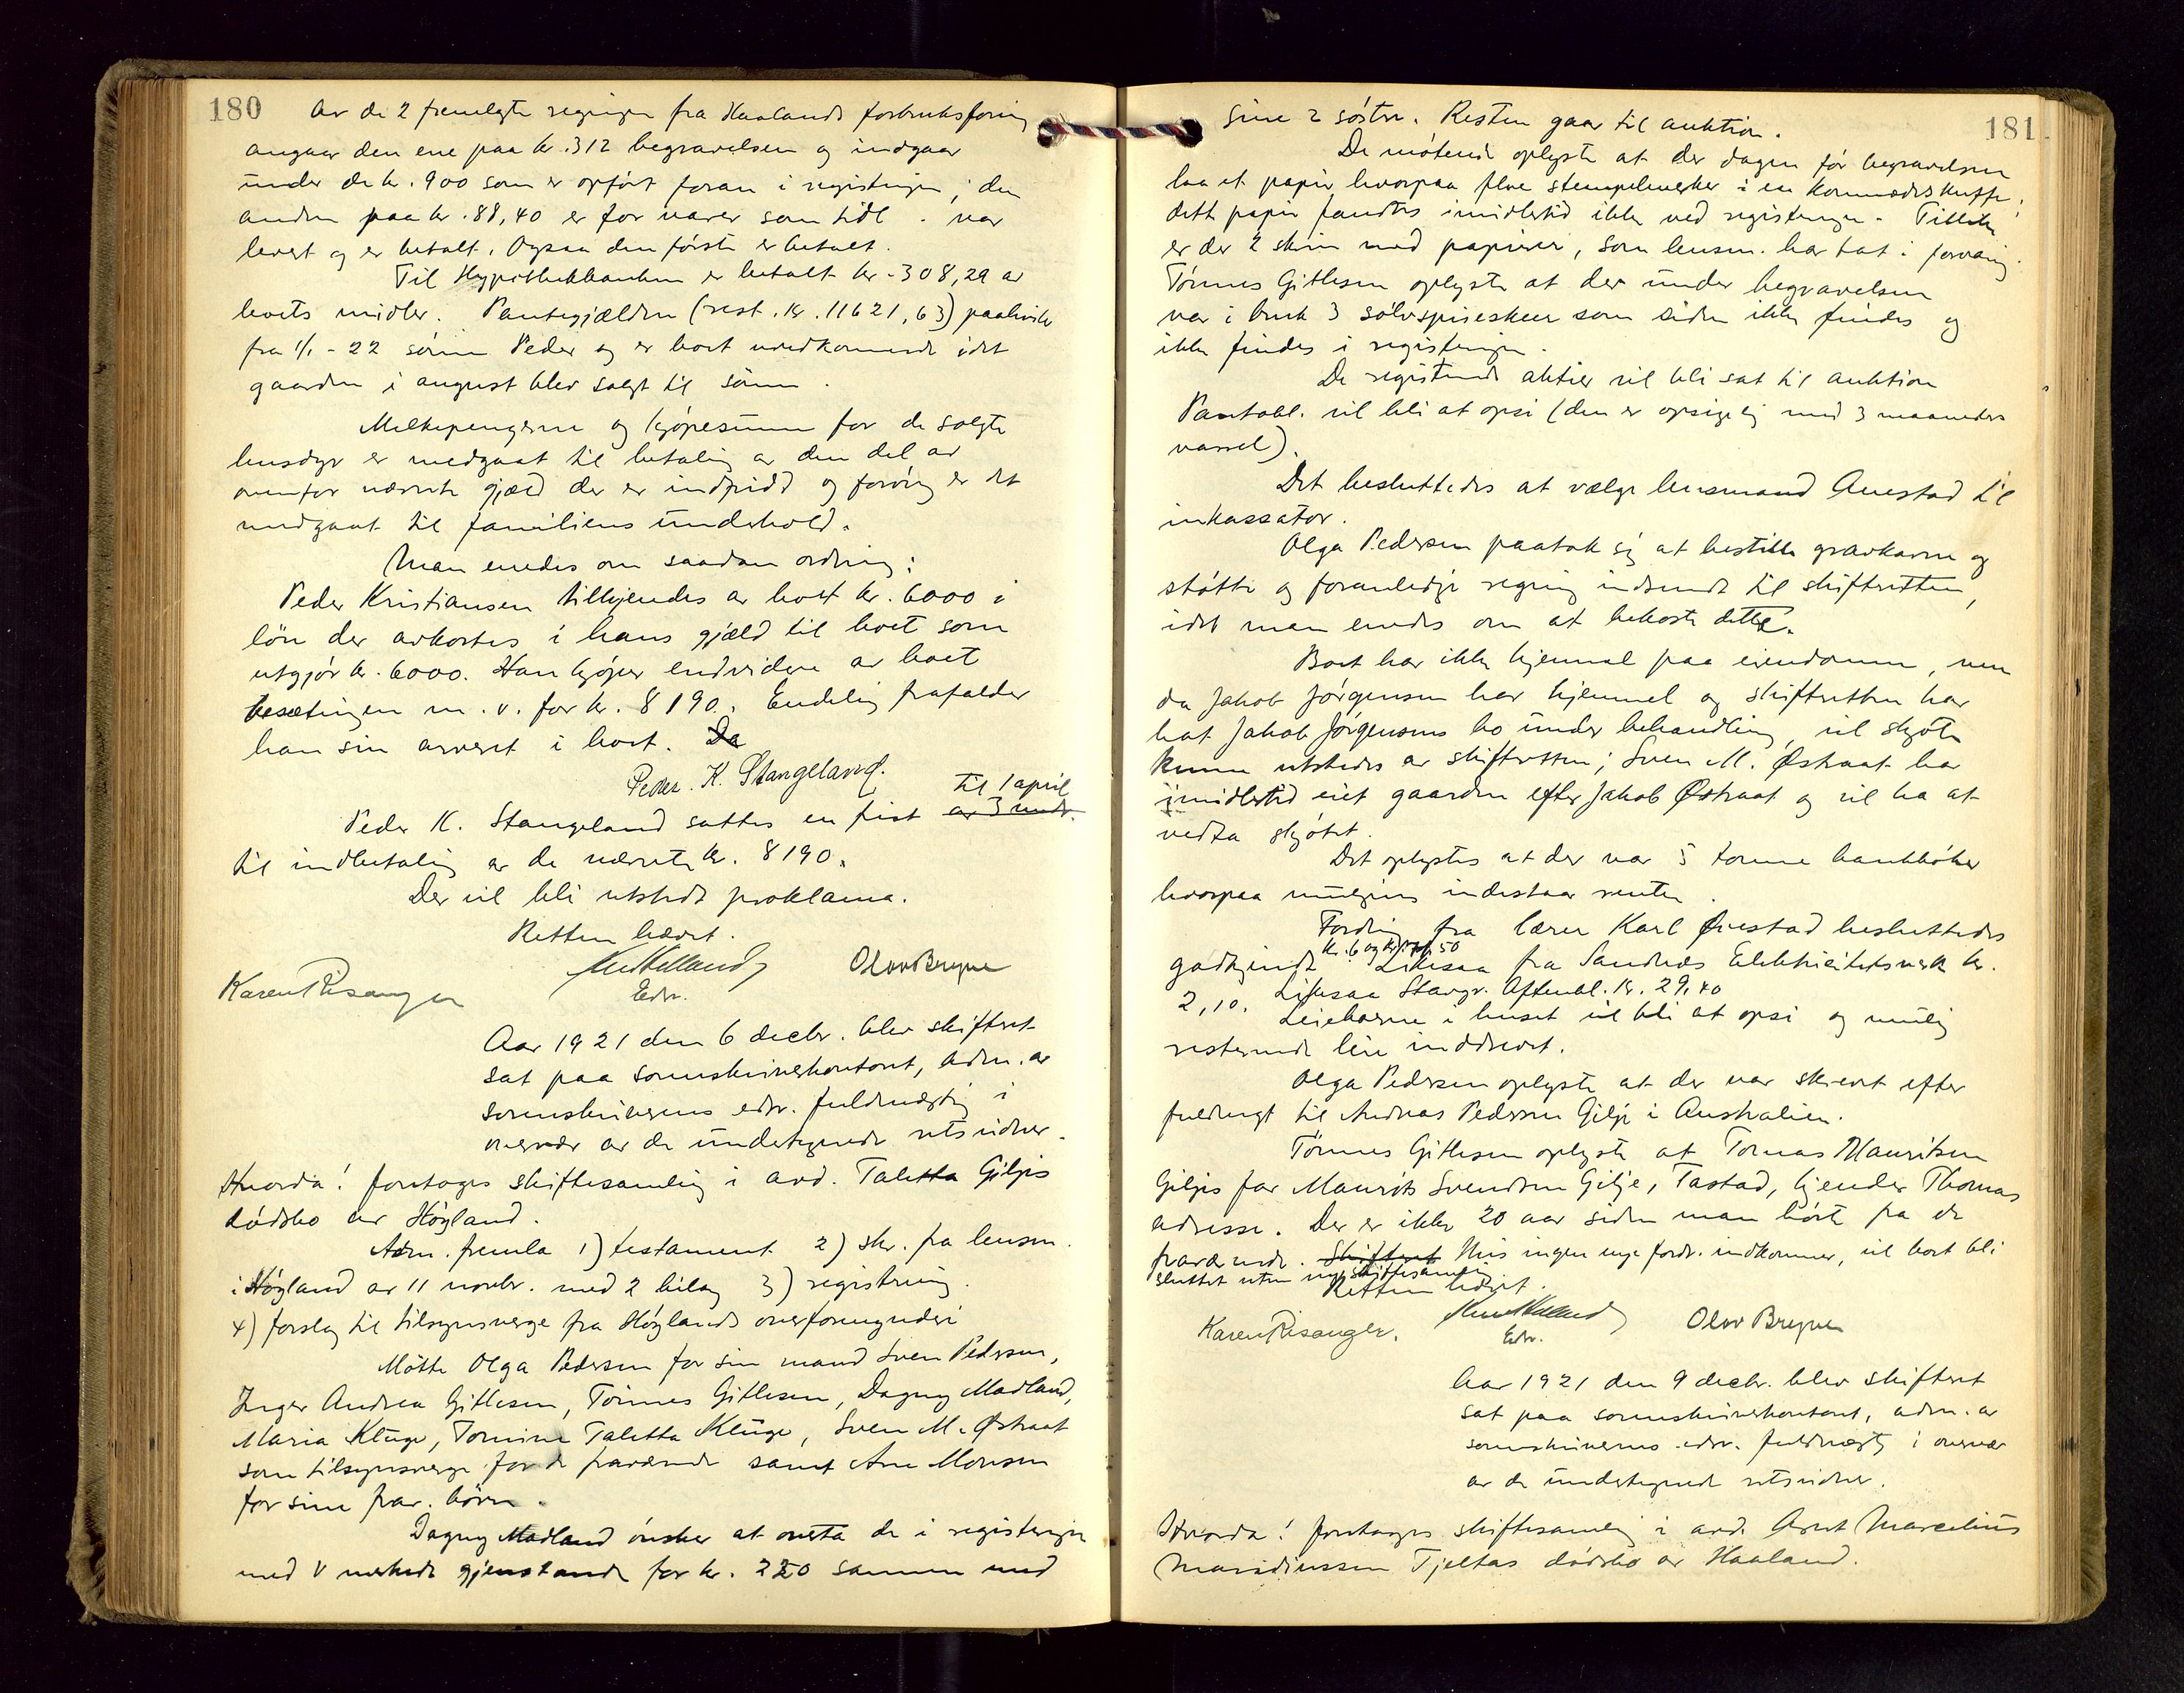 180
Av de 2 fremlagte regninger fra Haalands forbruksforning
angaar den ene paa kr. 312 begravelsen og indgaar
under de kr. 900 som er opført foran i registringen; den
anden paa kr. 88,40 er for varer som tidl. var
levert og er betalt. Ogsaa den første er betalt.
Til Hypothekbanken er betalt kr. 308,29 av
boets midler. Pantegjælden (rest. kr. 11621,63) paahviler
fra 1/1-22 sønnen Peder og er boet uvedkommende idet
gaarden i august blev solgt til sønnen.
Melkepengerne og kjøpesummen for de solgte
husdyr er medgaat til betaling av den del av
ovenfor nævnte gjæld der er indfridd og forøvrig er det
medgaat til familiens underhold.
Man enedes om saadan ordning:
Peder Kristiansen tilkjendes av boet kr. 6000 i
løn der avkortes i hans gjæld til boet som
utgjør kr. 6000. Han kjøper endvidere av boet
besætningen m.v. for kr. 8190. Endelig frafalder
han sin arveret i boet. Da
Peder. K. Stangeland.
til 1 april
Peder K. Stangeland sattes en frist av 3 mndr.
til indbetaling av de nævnte kr. 8190.
Der vil bli utstedt proklama.
Retten hævet.
Olav Bryne
Karen Risanger
Edsv.
Aar 1921 den 6 decbr. blev skifteret
sat paa sorenskriverkontoret, adm. av
sorenskriverens edsv. fuldmægtig i
overvær av de undertegnede retsvidner.
Hvorda! foretoges skiftesamling i avd. Taletta Giljes
dødsbo av Høyland.
Adm. fremla 1) testament 2) skr. fra lensm.
i Høyland av 11 novbr. med 2 bilag 3) registrering
4) forslag til tilsynsverge fra Høylands overformynderi
Møtte Olga Pedersen for sin mand Sven Pedersen,
Inger Andrea Gitlesen, Tønnes Gitlesen, Dagny Madland,
Maria Kluge, Tomine Taletta Kluge, Sven M. Østraat
som tilsynsverge for de fraværende samt Arne Monsen
for sine frav. børn.
Dagny Madland ønsker at overta de i registeringen
med V merkede gjenstande for kr. 220 sammen med
181
sine 2 søstre. Resten gaar til auktion.
De møtende oplyste at der dagen før begravelsen
laa et papir hvorpaa flere stempelmerker i en kommodeskuffe;
dette papir fandtes imidlertid ikke ved registeringen.
er der 2 skrin med papirer, som lensm. har tat i forvaring.
Tønnes Gitlesen oplyste at der under begravelsen
var i bruk 3 sølvspiseskeer som siden ikke findes og
ikke findes i registeringen.
De registrerte aktier vil bli sat til auktion
Pantobl. vil bli at opsi (den er opsigelig med 3 maaneders
varsel).
Det besluttedes at vælge lensmand Auestad til
inkassator.
Olga Pedersen paatok sig at bestille gravkarm og
støtte og foranledige regning indsendt til skifteretten,
idet man enedes om at bekoste dette.
Boet har ikke hjemmel paa eiendommen, men
da Jakob Jørgensen har hjemmel og skifteretten har
hat Jakob Jørgensens bo under behandling, vil skjøte
kunne utstedes av skifteretten; Sven M. Østraat har
imidlertid eiet gaarden efter Jakob Østraat og vil ha at
vedta skjøtet.
Det oplystes at der var 5 tomme bankbøker
hvorpaa muligens indestaar renter.
Fordring fra lærer Karl Øvestad besluttedes
godkjendt Likesaa fra Sandnæs Elektricitetsverk kr.
2,10. Likesaa Stavgr. Aftenbl. kr. 29,40
Leieboerne i huset vil bli at opsi og mulig
resterende leie inddrevet.
Olga Pedersen oplyste at der var skrevet efter
fuldmagt til Andreas Pedersen Gilje i Australien.
Tønnes Gitlesen oplyste at Tomas Mauritsen
Giljes far Maurits Svendsen Gilje, Tastad, kjender Thomas
adresse. Der er ikke 20 aar siden man hørte fra de
fraværende. Skifteret Hvis ingen nye fordr. indkommer, vil boet bli
sluttet uten ny skiftesamling
Retten hævet.
Karen Risanger.
Edsv.
Olav Bryne
Aar 1921 den 9 decbr. blev skifteret
sat paa sorenskriverkontoret, adm. av
sorenskriverens edsv. fuldmægtig i overvær
av de undertegnede retsvidner.
Hvorda! foretoges skiftesamling i avd. Arnt Marcelius
Tjeltas dødsbo av Haaland.